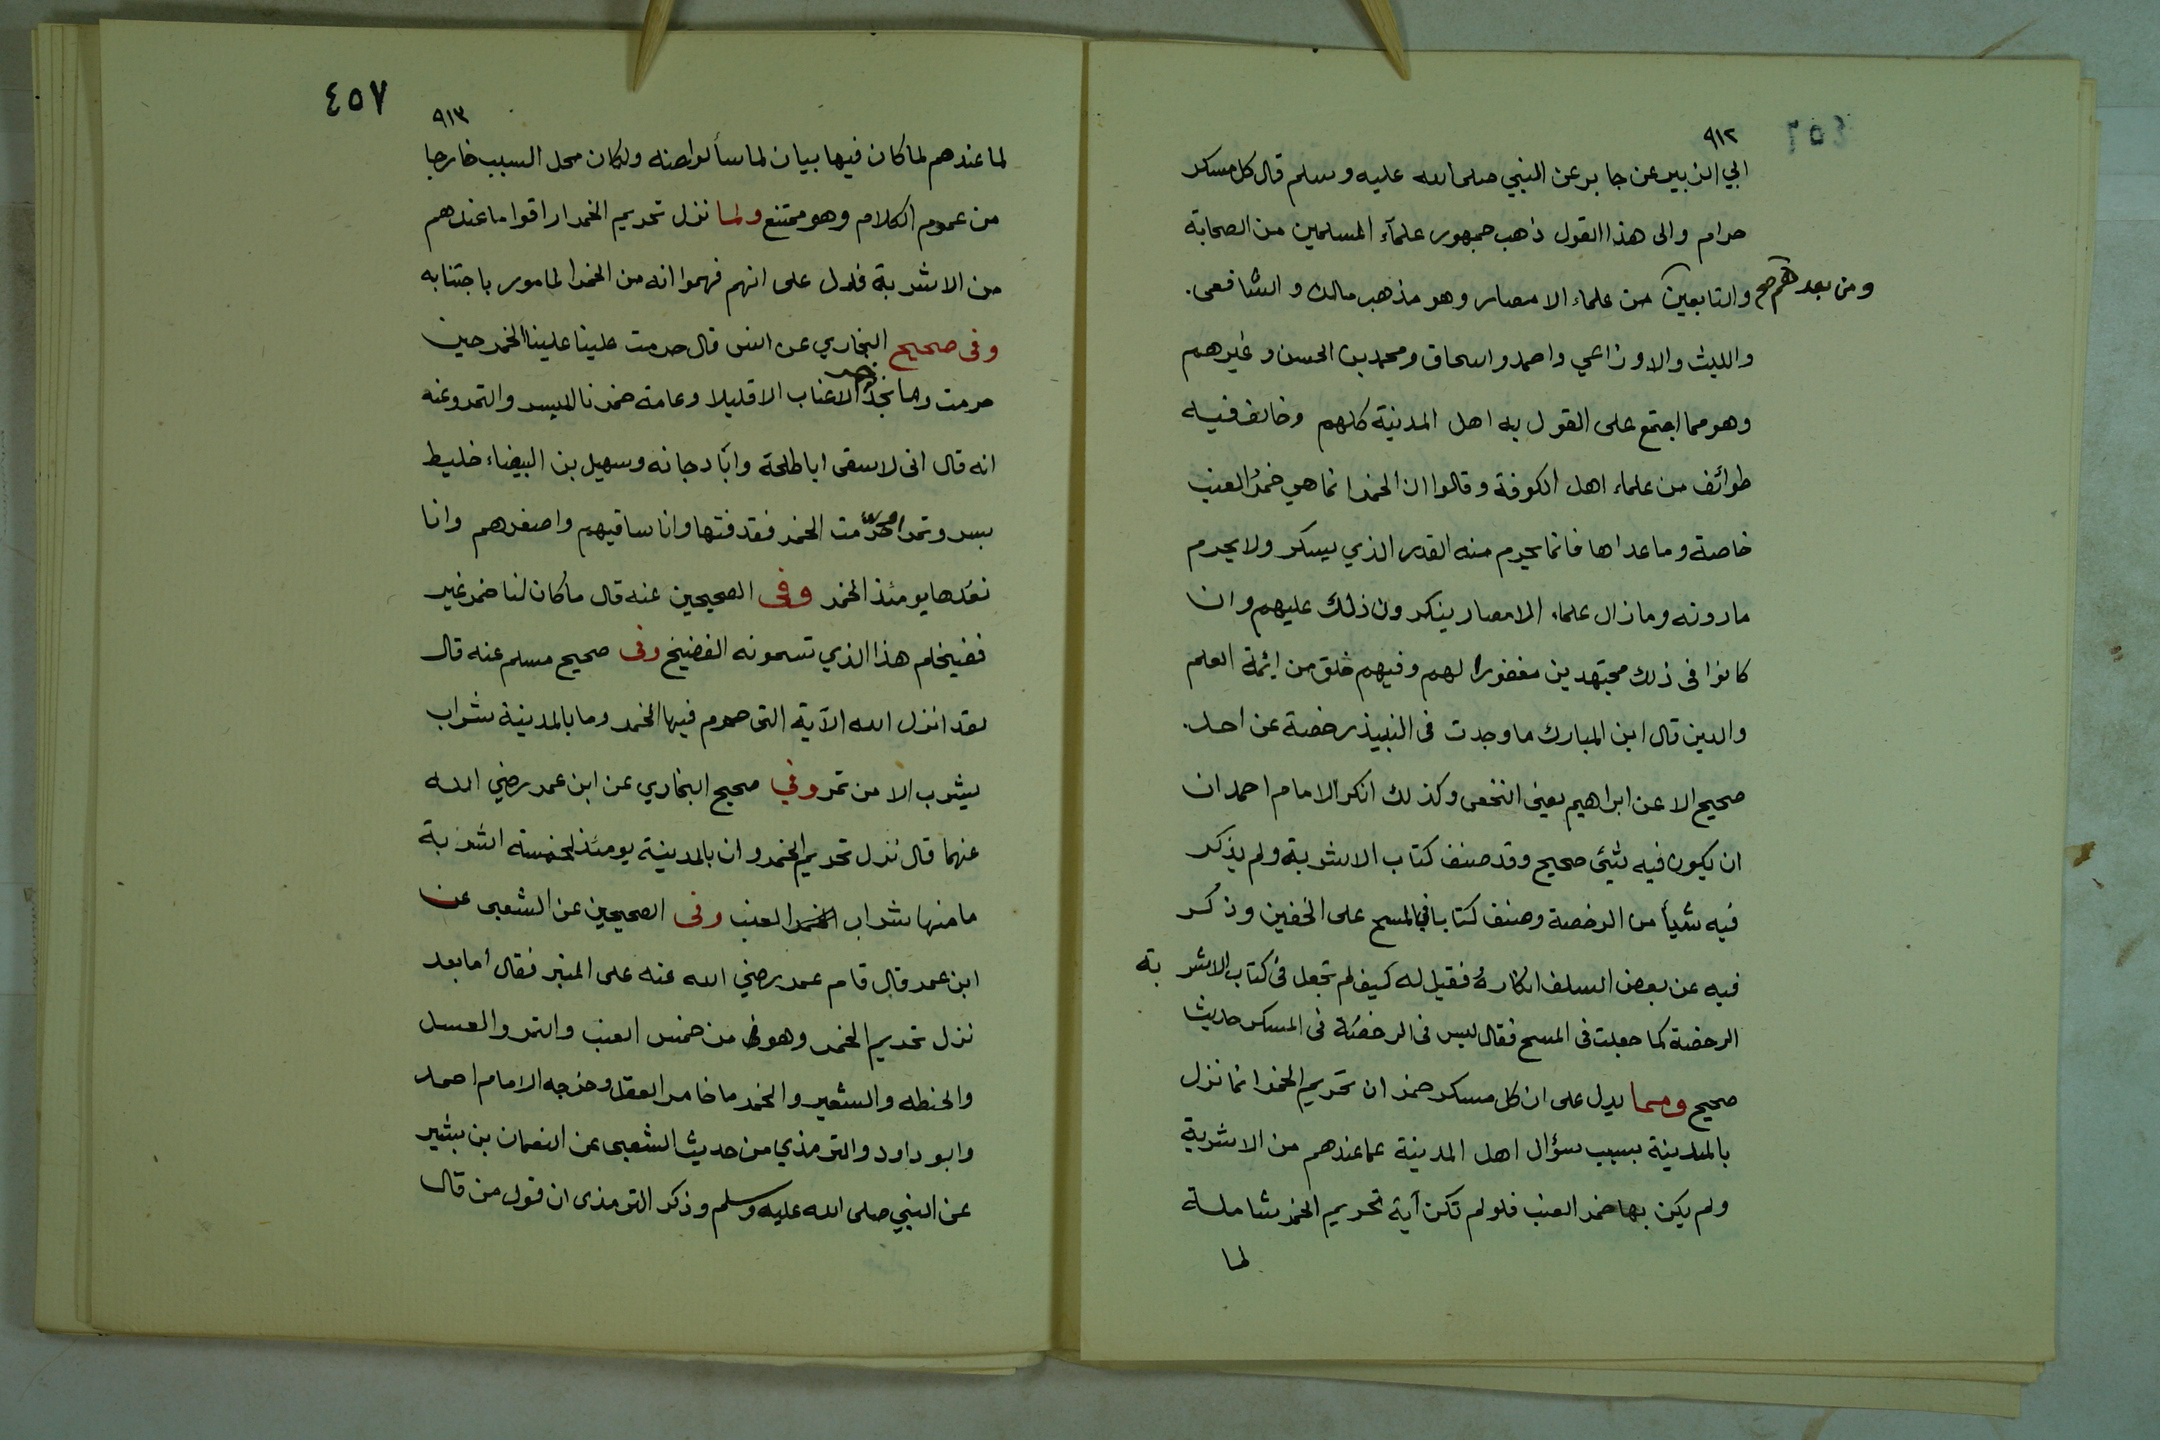 ٩١٢
ابي الزبير عن جابر عن النبي صلى الله عليه وسلم قال كل مسكر
حرام والى هذا القول ذهب جمهور علمآء المسلمين من الصحابة
والتابعين ومن بعدهم صح من علماء الامصار وهو مذهب مالك والشافعى.
والليث والاوزاعي واحمد واسحاق ومحمد بن الحسن وغيرهم
وهو مما اجتمع على القول به اهل المدينة كلهم وخالف فيه
طوائف من علماء اهل الكوفة وقالوا ان الخمر انما هي خمر العنب
خاصة وما عداها فانما يحرم منه القدر الذي يسكر ولا يحرم
ما دونه وما زال علماء الامصار ينكرون ذلك عليهم وان
كانوا فى ذلك مجتهدين مغفورا لهم وفيهم خلق من ائمة العلم
والدين قال ابن المبارك ما وجدت فى النبيذ رخصة عن احد.
صحيح الا عن ابراهيم يعنى النخعى وكذلك انكر الامام احمد ان
ان يكون فيه شيئ صحيح وقد صنف كتاب الاشربة ولم يذكر
فيه شيأ من الرخصة وصنف كتابا في المسح على الخفين وذكر
فيه عن بعض السلف انكاره فقيل له كيف لم تجعل فى كتاب الاشربة
الرخصة كما جعلت فى المسح فقال ليس فى الرخصة فى المسكر حديث
صحيح ومما يدل على ان كل مسكر خمر ان تحريم الخمر انما نزل
بالمدينة بسبب سؤال اهل المدينة عما عندهم من الاشربة
ولم يكن بها خمر العنب فلو لم تكن آية تحريم الخمر شاملة
لما
٤٥٧
٩١٣
لما عندهم لما كان فيها بيان لما سألوا عنه ولكان محل السبب خارجا
من عموم الكلام وهو ممتنع ولما نزل تحريم الخمر اراقوا ما عندهم
من الاشربة فدل على انهم فهموا انه من الخمر المامور باجتنابه
وفى صحيح البخاري عن انس قال حرمت علينا علينا الخمر حين
حرمت وما نجد خمر الاعناب الا قليلا وعامة خمرنا البسر والتمر وعنه
انه قال انى لاسقى ابا طلحة وابا دجانه وسهيل بن البيضاء خليط
بسر وتمر اذ حرّمت الخمر فقدفتها وانا ساقيهم واصغرهم وانا
نعدها يومئذ الخمر وفى الصحيحين عنه قال ما كان لنا خمر غير
فضيخكم هذا الذي تسمونه الفضيخ وفى صحيح مسلم عنه قال
لقد انزل الله الآية التى حرم فيها الخمر وما بالمدينة شراب
يشرب الا من تمر وفي صحيح البخاري عن ابن عمر رضي الله
عنهما قال نزل تحريم الخمر وان بالمدينة يومئذ لخمسة اشربة
ما منها شراب العنب وفى الصحيحين عن الشعبى عن
ابن عمر قال قام عمر رضي الله عنه على المنبر فقال أما بعد
نزل تحريم الخمر وهو من خمس العنب والتمر والعسل
والحنطه والشعير والخمر ما خامر العقل وخرجه الامام احمد
وابو داود والترمذي من حديث الشعبى عن النعمان بن بشير
عن النبي صلى الله عليه وسلم وذكر الترمذى ان قول من قال